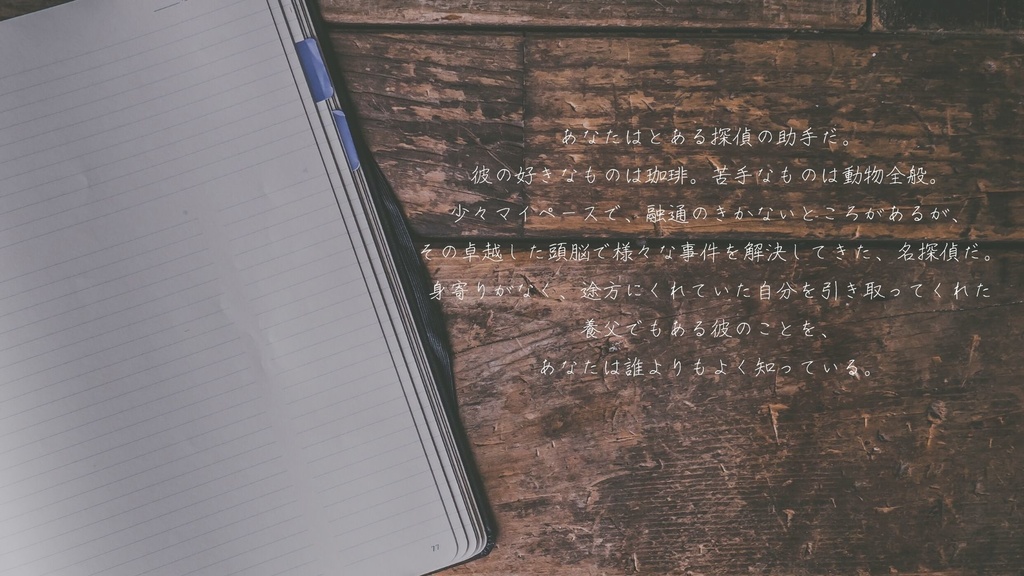 あなたはとある探偵の助手だ。
彼の好きなものは珈琲。苦手なものは動物全般。
少々マイペースで、融通のきかないところがあるが、
その卓越した頭脳で様々な事件を解決してきた、名探偵だ。
身寄りがなく、途方にくれていた自分を引き取ってくれた
養父でもある彼のことを、
あなたは誰よりもよく知っている。
77